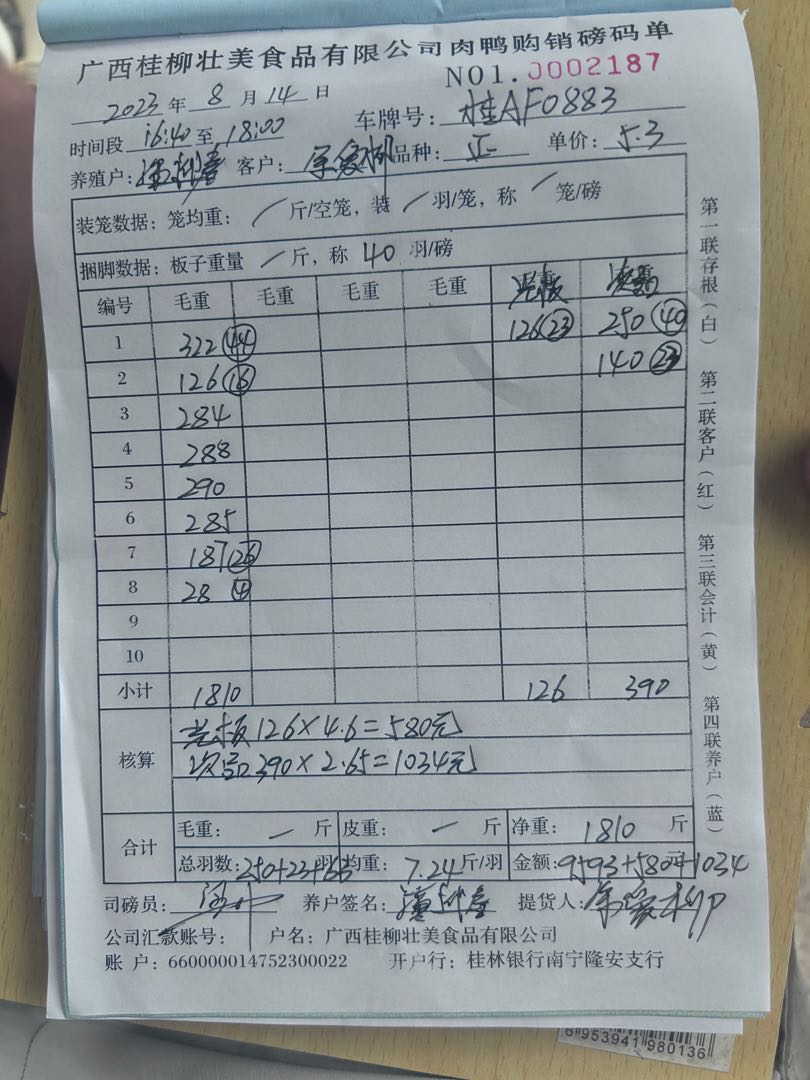 广西桂柳壮美食品有限公司肉鸭购销磅码单
NO1. 0002187
2023 年 8 月 14 日
车牌号: 桂AF0883
时间段 16:40 至 18:00
养殖户: 客户: 品种: 正 单价: 5.3
装笼数据: 笼均重: / 斤/空笼, 装 / 羽/笼, 称 / 笼/磅
捆脚数据: 板子重量 / 斤, 称 40 羽/磅
编号 毛重 毛重 毛重 毛重 光板 次品
1 322 (44) 126 (23) 250 (40)
2 126 (16) 140 (23)
3 284
4 288
5 290
6 285
7 187 (26)
8 28 (4)
9
10
小计 1810 126 390
核算
光板 126×4.6=580元
次品 390×2.65=1034元
合计
毛重: — 斤 皮重: — 斤 净重: 1810 斤
总羽数: 250+23+63 羽 均重: 7.24 斤/羽 金额: 9593+580+1034 元
司磅员: 养户签名: 提货人:
公司汇款账号: 户名: 广西桂柳壮美食品有限公司
账 户: 660000014752300022 开户行: 桂林银行南宁隆安支行
第一联存根(白) 第二联客户(红) 第三联会计(黄) 第四联养户(蓝)
6 953941 980136